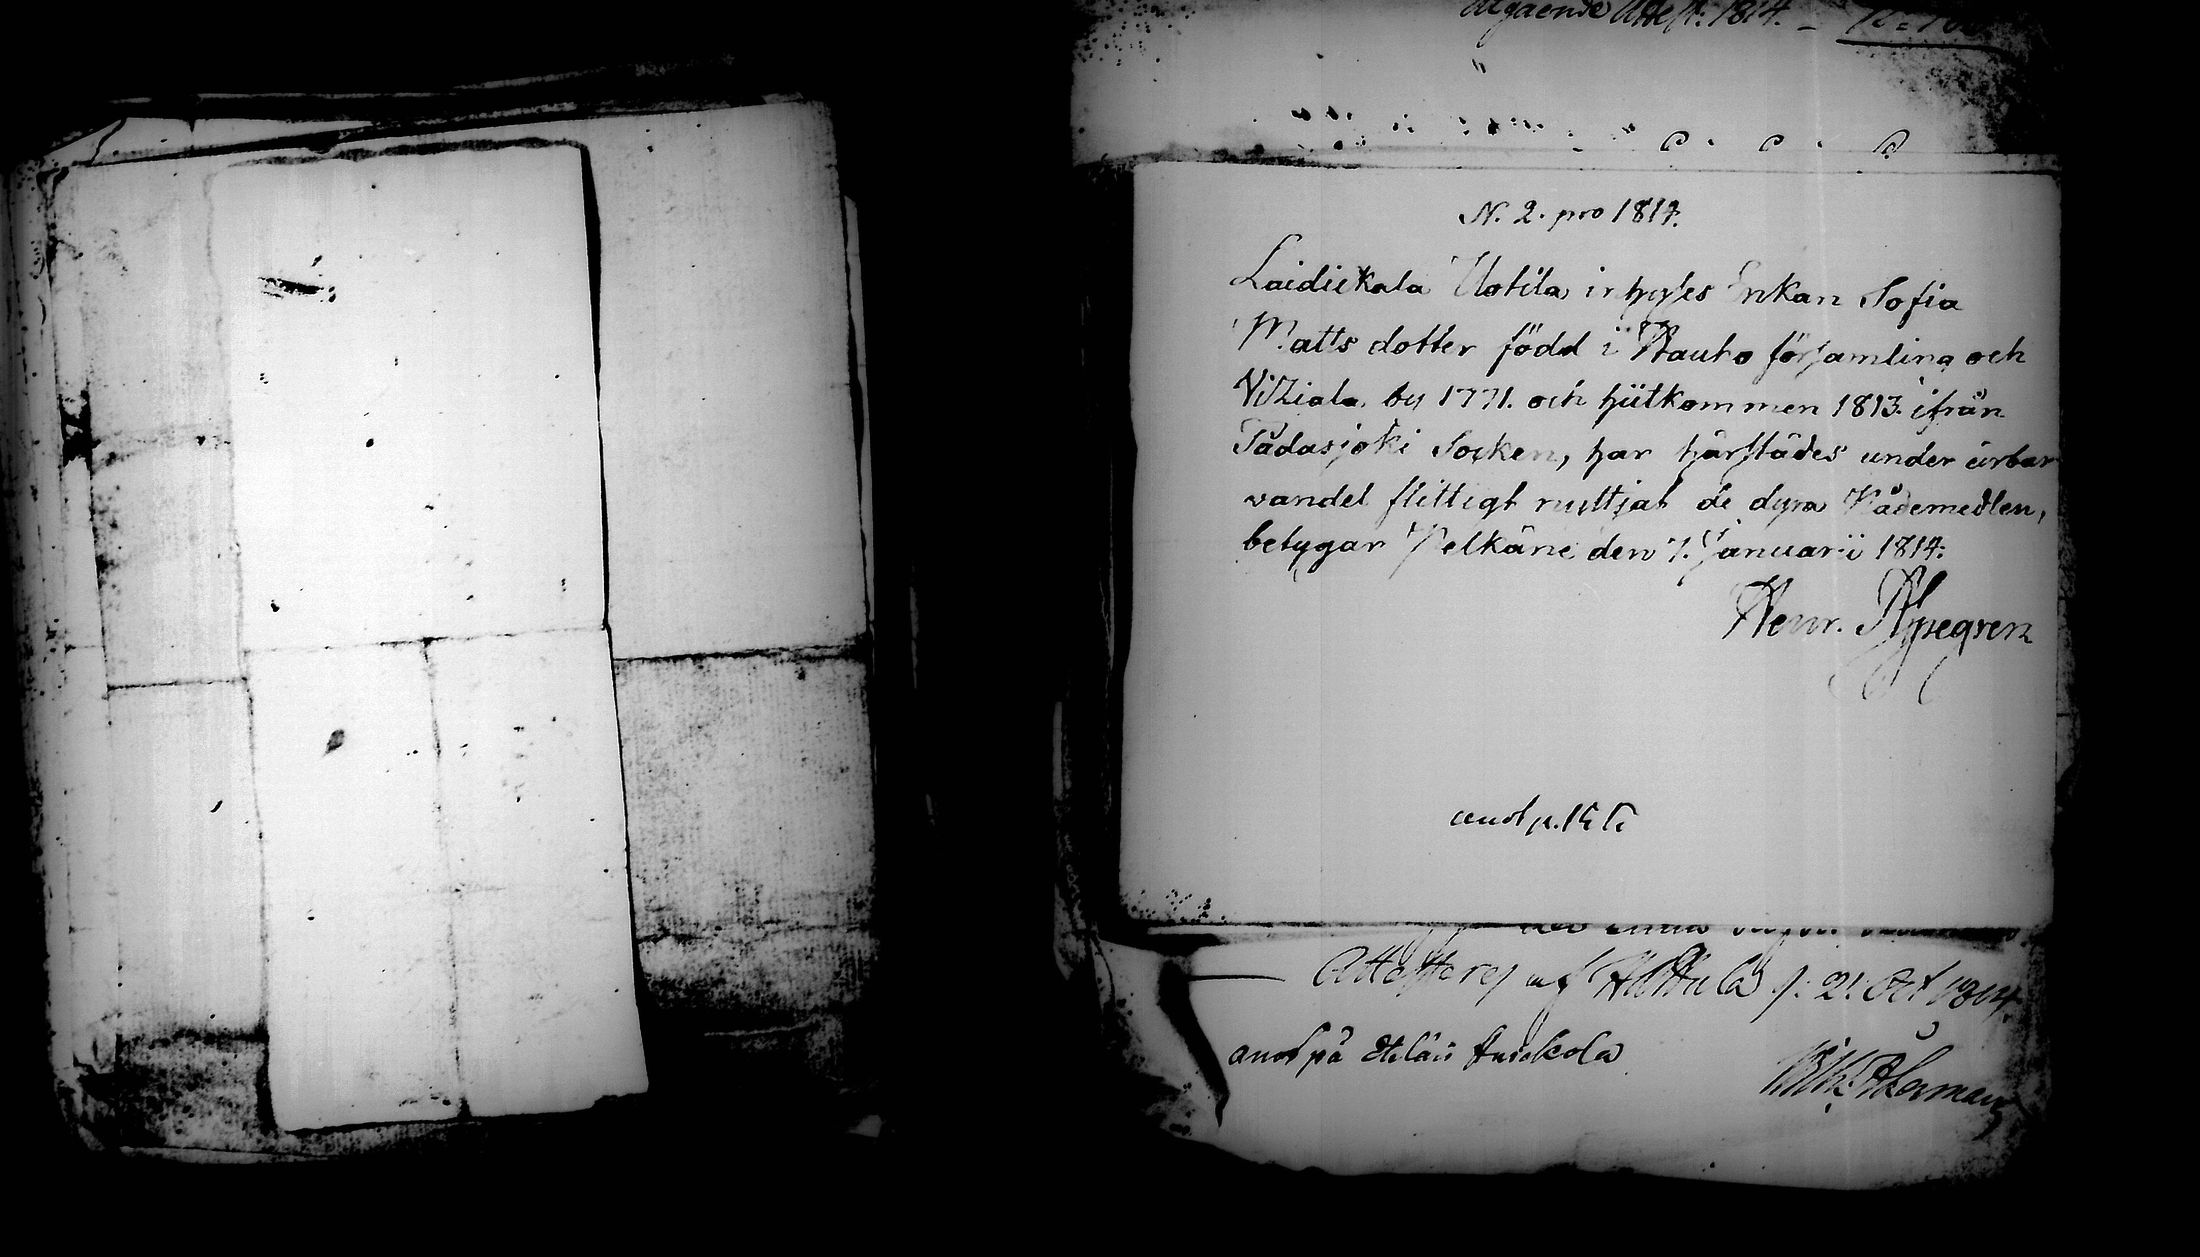 utgående Attest: 1814. –
N. 2. pro 1814.
Laidickala Uotila inhyses Enkan Sofia
Matts dotter född i Hauho församling och
Vitziala by 1771. och hitkommen 1813. ifrån
Padasjoki Socken, har härstädes under ärbar
vandel flittigt nyttjat de dyra Nådemedlen,
betygar Pelkäne den 7. Januarii 1814.
Henr. Ahlgren
anot p.
Attest af Hattula d. 2! Oct 1814
anot på
Wilh: Åkerman